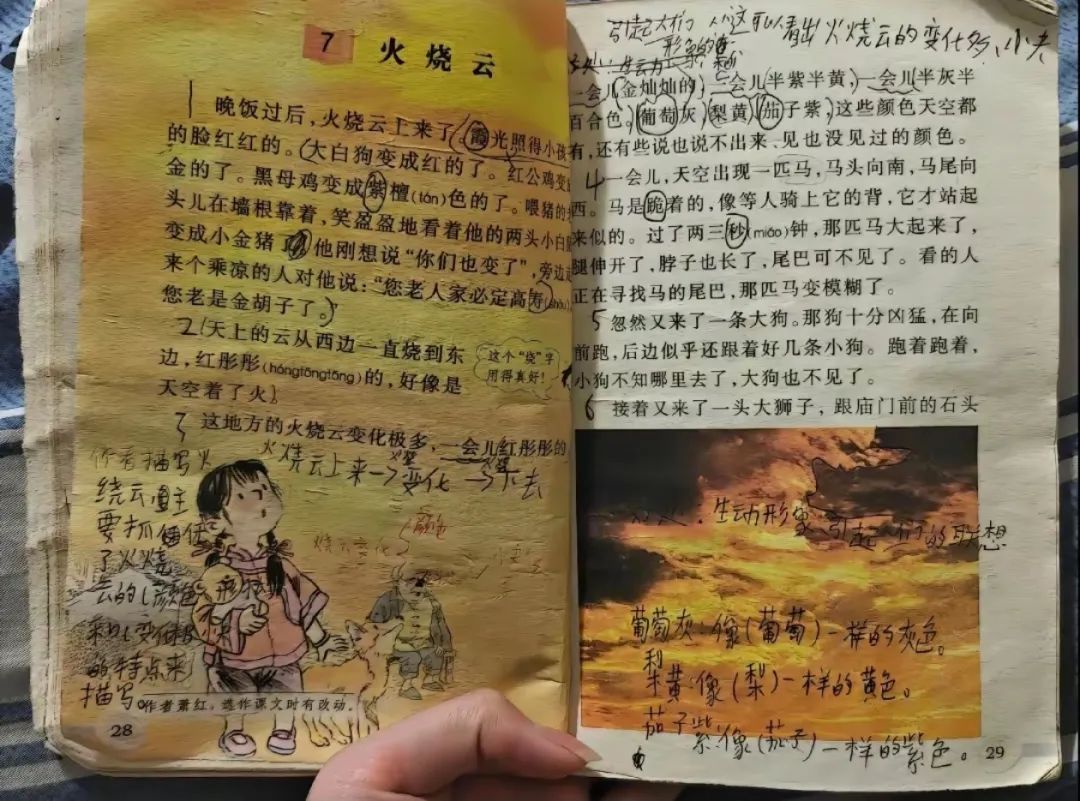 7 火烧云
晚饭过后，火烧云上来了，霞光照得小孩
的脸红红的。大白狗变成红的了。红公鸡变成
金的了。黑母鸡变成紫檀(tán)色的了。喂猪的老
头儿在墙根靠着，笑盈盈地看着他的两头小白猪
变成小金猪了。他刚想说“你们也变了”，旁边走
来个乘凉的人对他说：“您老人家必定高寿(shòu)，
您老是金胡子了。”
2 天上的云从西边一直烧到东
边，红彤彤(hóngtōngtōng)的，好像是
天空着了火。
这个“烧”字
用得真好！
3 这地方的火烧云变化极多，一会儿红彤彤的
火烧云上来→变化→下去
作者描写火
烧云主
要抓住
了火烧
云的(颜色 形状
和(变化极
的特点来
描写。
颜色
作者萧红，选作课文时有改动。
28
引起人们
从这可以看出火烧云的变化多，
一会儿金灿灿的，一会儿半紫半黄，一会儿半灰半
百合色。葡萄灰，梨黄，茄子紫，这些颜色天空都
有，还有些说也说不出来、见也没见过的颜色。
4 一会儿，天空出现一匹马，马头向南，马尾向
西。马是跪着的，像等人骑上它的背，它才站起
来似的。过了两三秒(miǎo)钟，那匹马大起来了，
腿伸开了，脖子也长了，尾巴可不见了。看的人
正在寻找马的尾巴，那匹马变模糊了。
5 忽然又来了一条大狗。那狗十分凶猛，在向
前跑，后边似乎还跟着好几条小狗。跑着跑着，
小狗不知哪里去了，大狗也不见了。
6 接着又来了一头大狮子，跟庙门前的石头
生动形象 引起人们的联想
葡萄灰：像(葡萄)一样的灰色。
梨
梨黄：像(梨)一样的黄色。
茄子紫：像(茄子)一样的紫色。
29